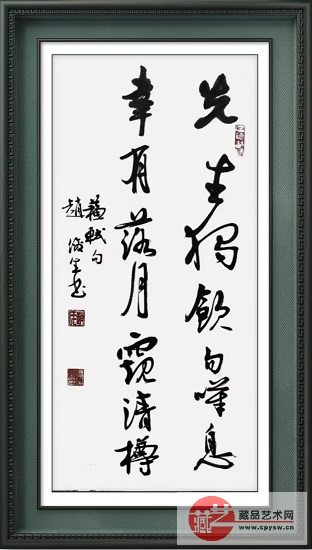 先生獨飲勿嘆息
幸有落月窺清樽
蘇軾句
趙俊生書
藏品艺术网
www.cpysw.cn